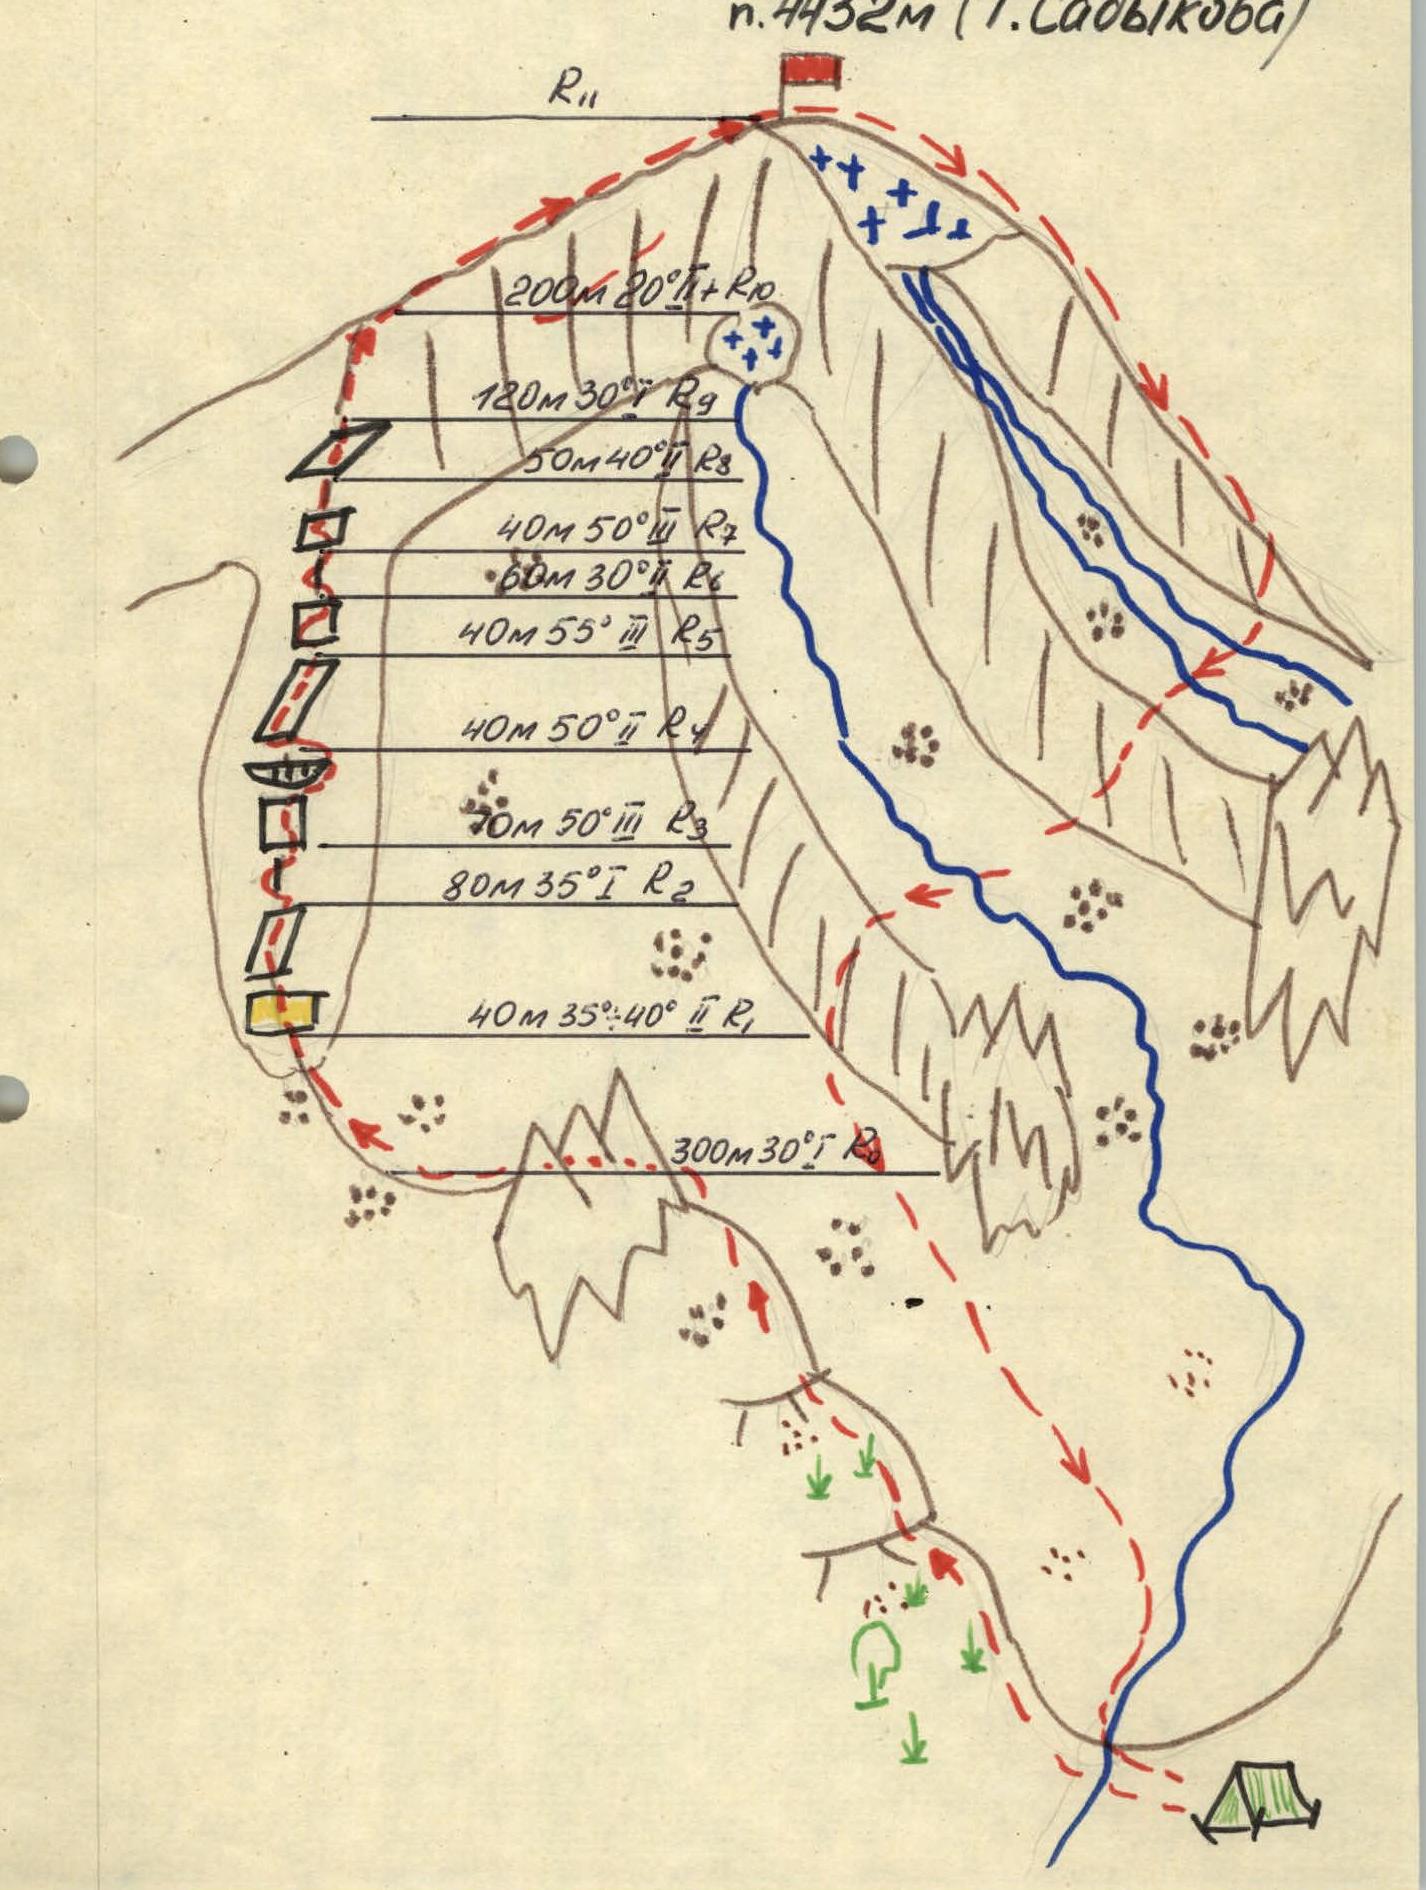 п.4432м (Т.Садыкова)
R11
200м 20° II+ R10
120м 30° I R9
50м 40° II R8
40м 50° III R7
60м 30° II R6
40м 55° III R5
40м 50° II R4
70м 50° III R3
80м 35° I R2
40м 35°÷40° II R1
300м 30° I R0